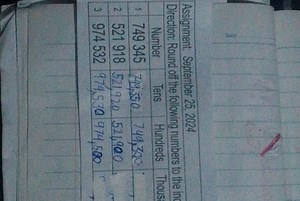 Assignment September 25, 2024
Direction: Round off the following numbers to the
Number Tens Hundreds Thous
1 749 345 749,300
2 521 918 521,920 521,900
3 974 532 974,530 974,500